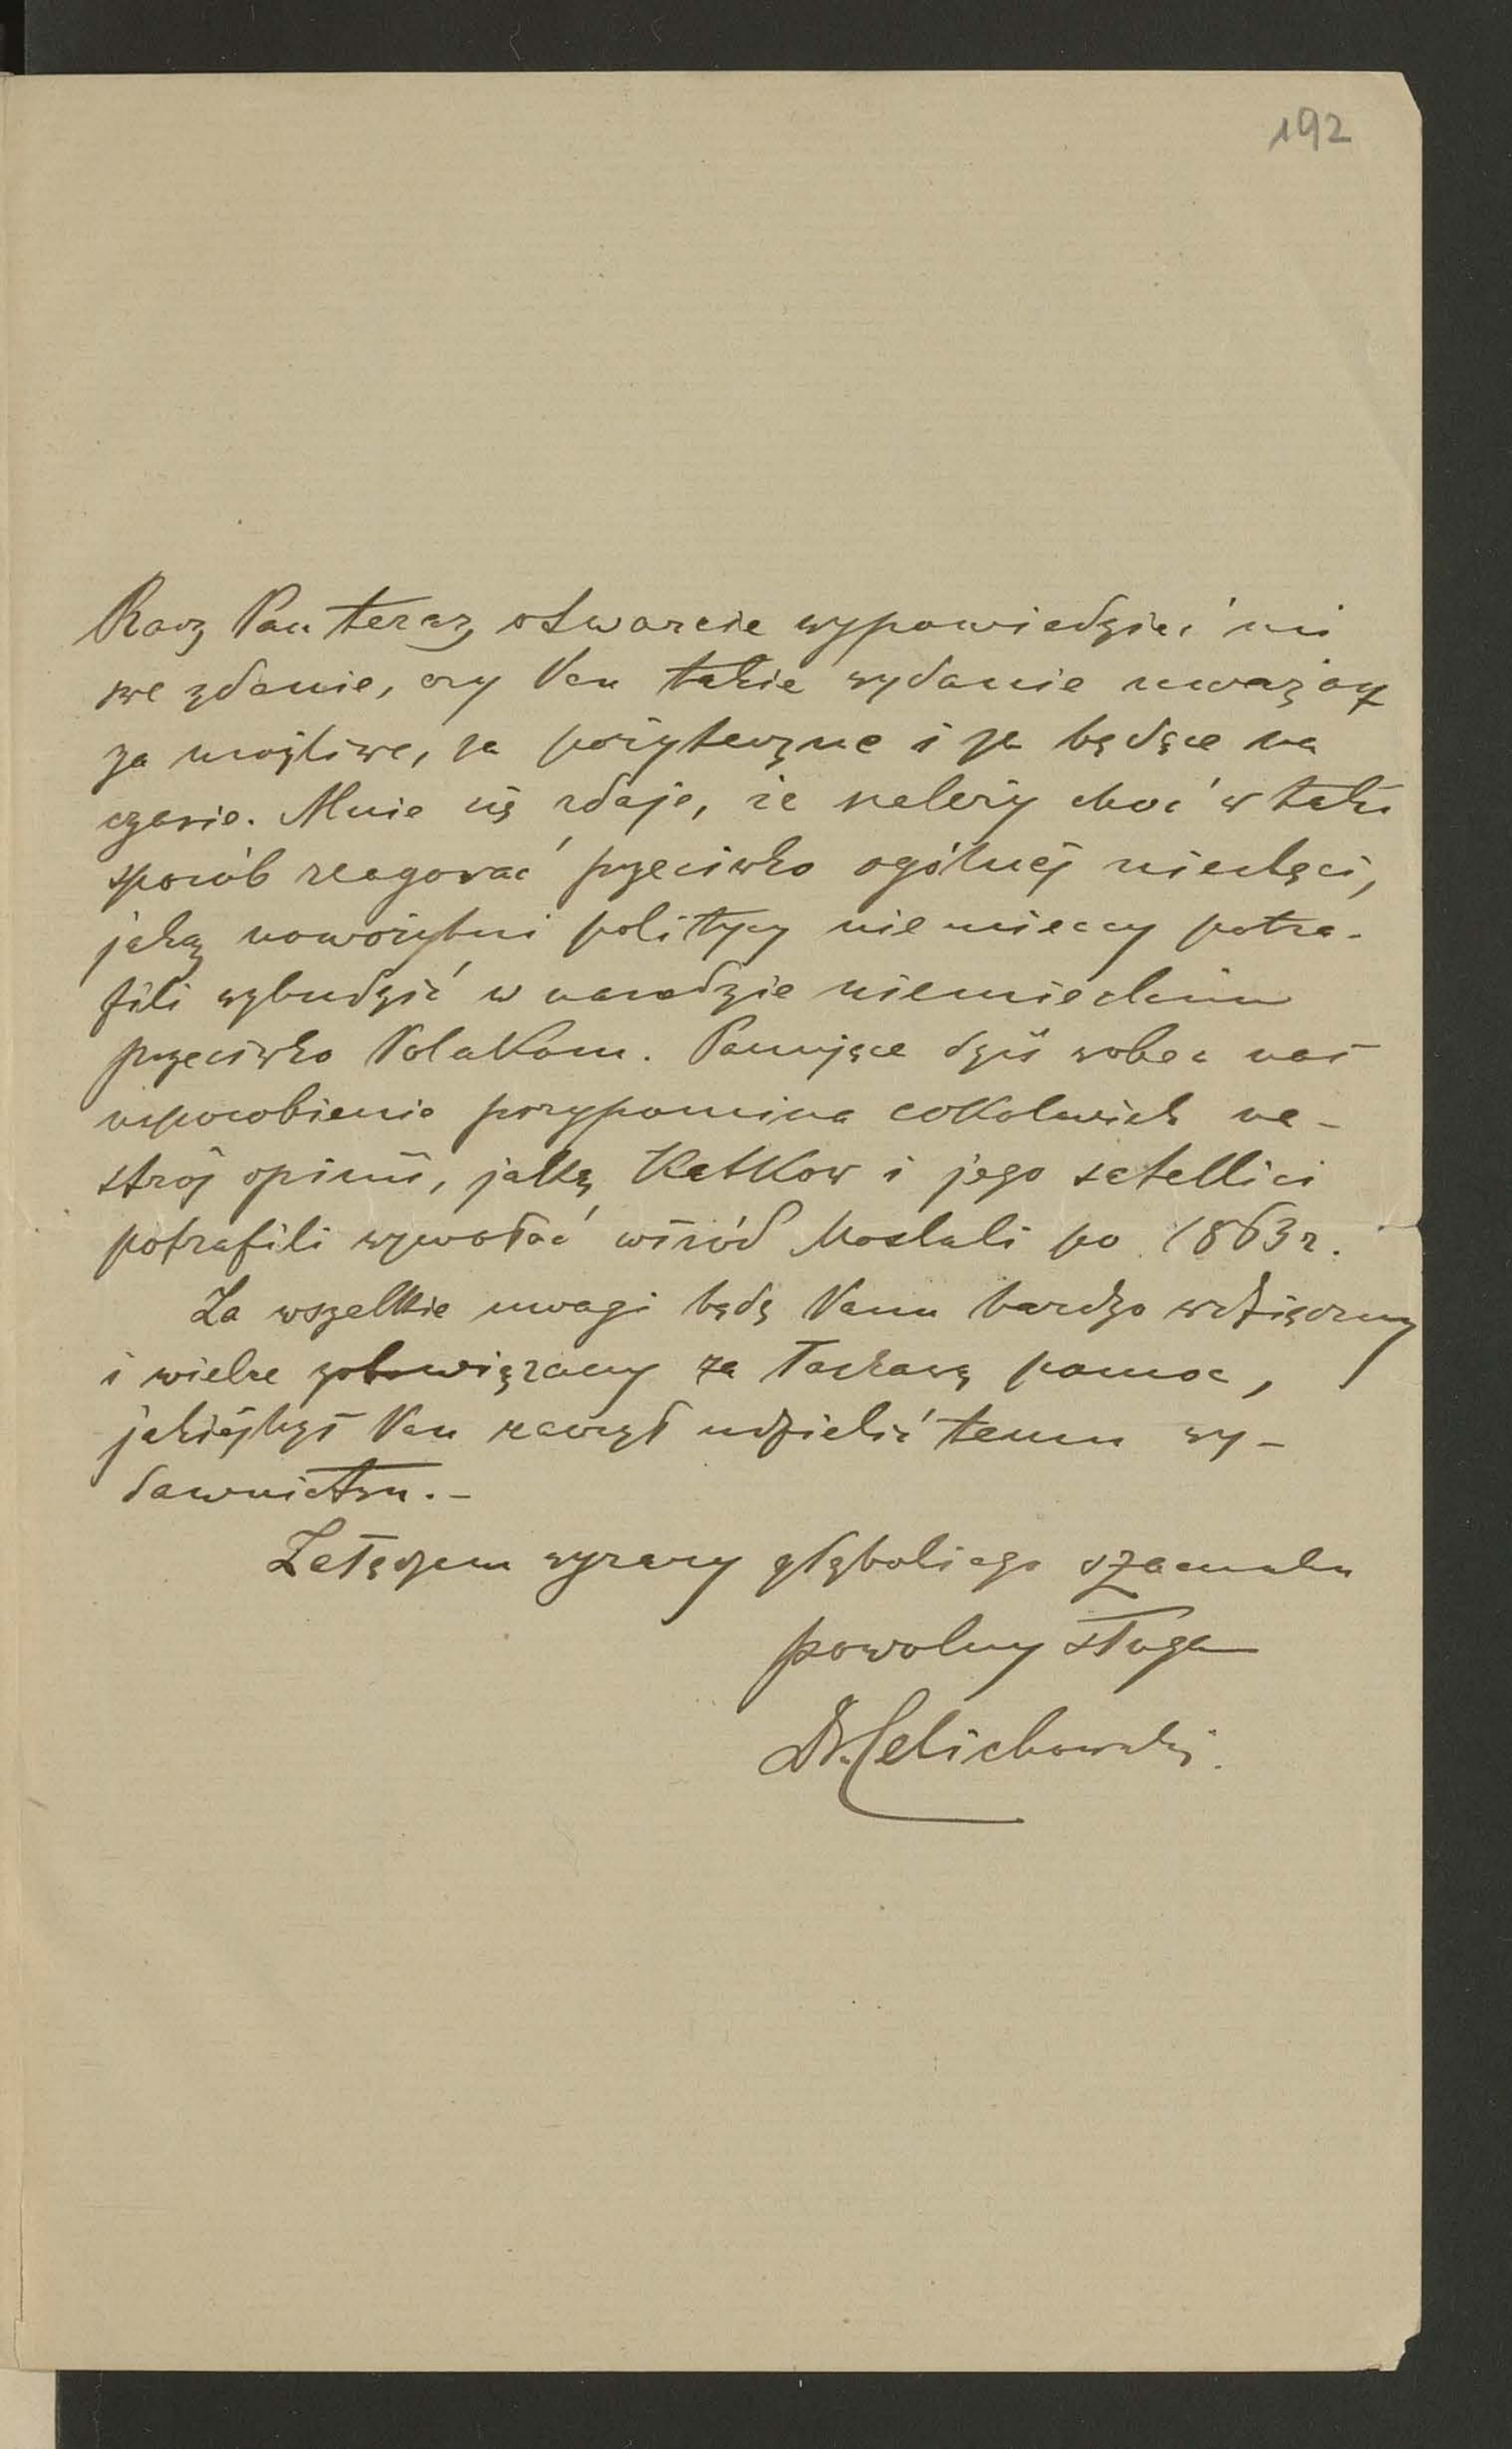 192
Racz Pan teraz otwarcie wypowiedzieć mi
swe zdanie, czy Pan takie wydanie uważasz
za możliwe, za pożyteczne i za będące na
czasie. Mnie się zdaje, że należy choć w taki
sposób reagować przeciwko ogólnéj niechęci,
jaką nowożytni politycy niemieccy potra-
fili wzbudzić w narodzie niemieckim
przeciwko Polakom. Panujące dziś wobec nas
usposobienie przypomina cokolwiek na-
strój opinii, jaką Katkow i jego satellici
potrafili wywołać wśród Moskali po 1863 r.
Za wszelkie uwagi będę Panu bardzo wdzięczny
i wielce zobowiązany za łaskawą pomoc,
jakiéjbyś Pan raczył udzielić temu wy-
dawnictwu. –
Załączam wyrazy głębokiego szacunku
powolny sługa
Dr. Celichowski.